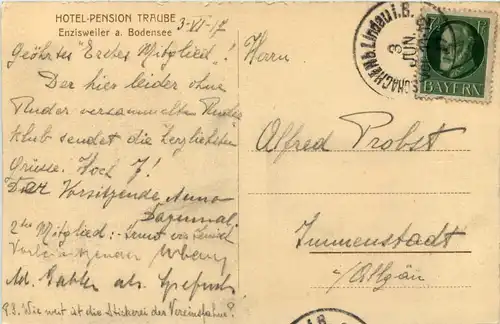 HOTEL-PENSION TRAUBE
Enzisweiler a. Bodensee
3-VI-17
Geöhrtes "Erstes Mitglied"!
Der hier leider ohne
Ruder versammelte Ruder
klub sendet die herzlichsten
Grüsse. Hoch J!
Der Vorsitzende Anno
Dazumal.
2tes Mitglied:- Ernst
M. Gabler als
P.S. Wie weit ist die Stickerei der Vereinsfahne?
SCHACHEN b. Lindau i. B.
3 JUN
BAYERN
Herrn
Alfred Probst
Immenstadt
i/Allgäu